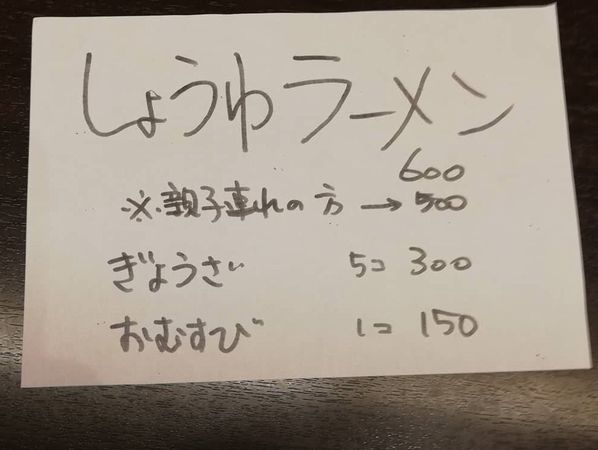 しょうゆラーメン
600
※親子連れの方→500
ぎょうざ 5コ 300
おむすび 1コ 150